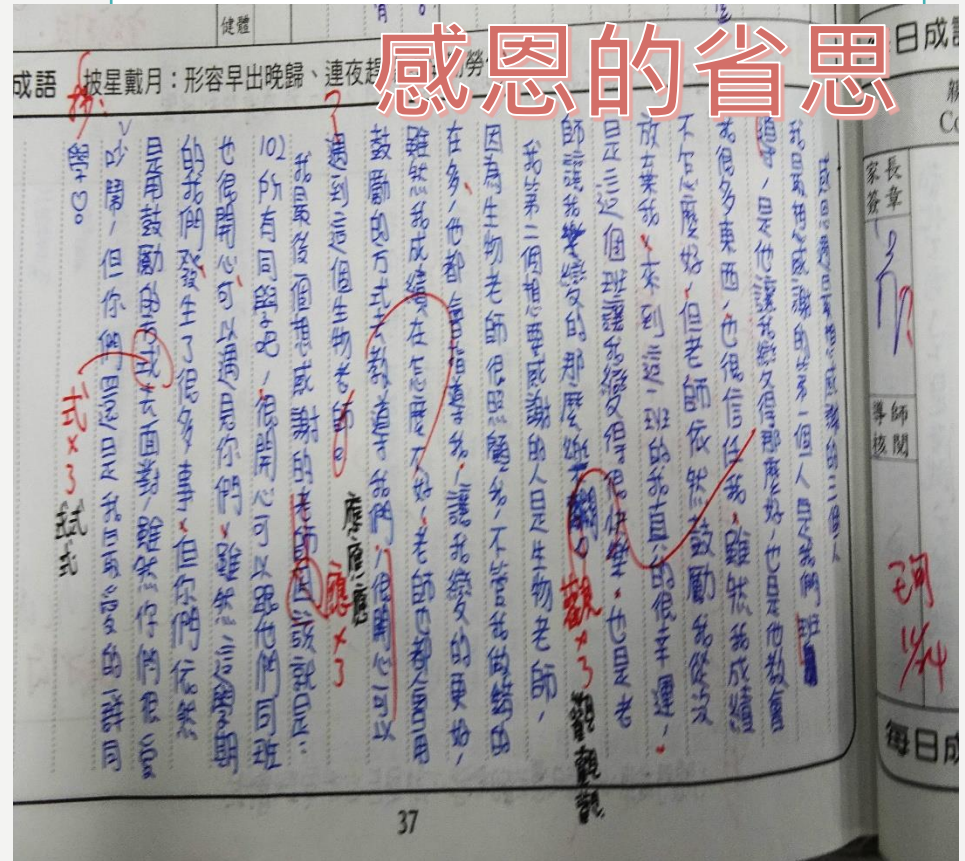 感恩的省思
健體
成語 披星戴月：形容早出晚歸、連夜趕
每日成語
家長
簽章
導師
核閱
我最想感謝的第一個人是我們班
導，是他讓我變得那麼好，也是他教會
我很多東西，也很信任我，雖然我成績
不怎麼好，但老師依然鼓勵我從沒
放棄我，來到這一班的我真的很幸運，
是這個班讓我變得很快樂，也是老
師讓我變的那麼樂觀。
我第二個想要感謝的人是生物老師，
因為生物老師很照顧我，不管我做錯的
在多，他都會指導我，讓我變的更好，
雖然我成績在怎麼不好，老師也都會用
鼓勵的方式去教導我們，很開心可以
遇到這個生物老師。
我最後一個想感謝的
102所有同學吧，很開心可以跟他們同班
也很開心可以認識你們，雖然這學期
的我們發生了很多事，但你們依然
是用鼓勵的方式去面對，雖然你們很愛
吵鬧，但你們還是是我最愛的
學♡。
觀×3
觀觀觀
應×3
應應應
式×3
式式式
11/24
37
每日成